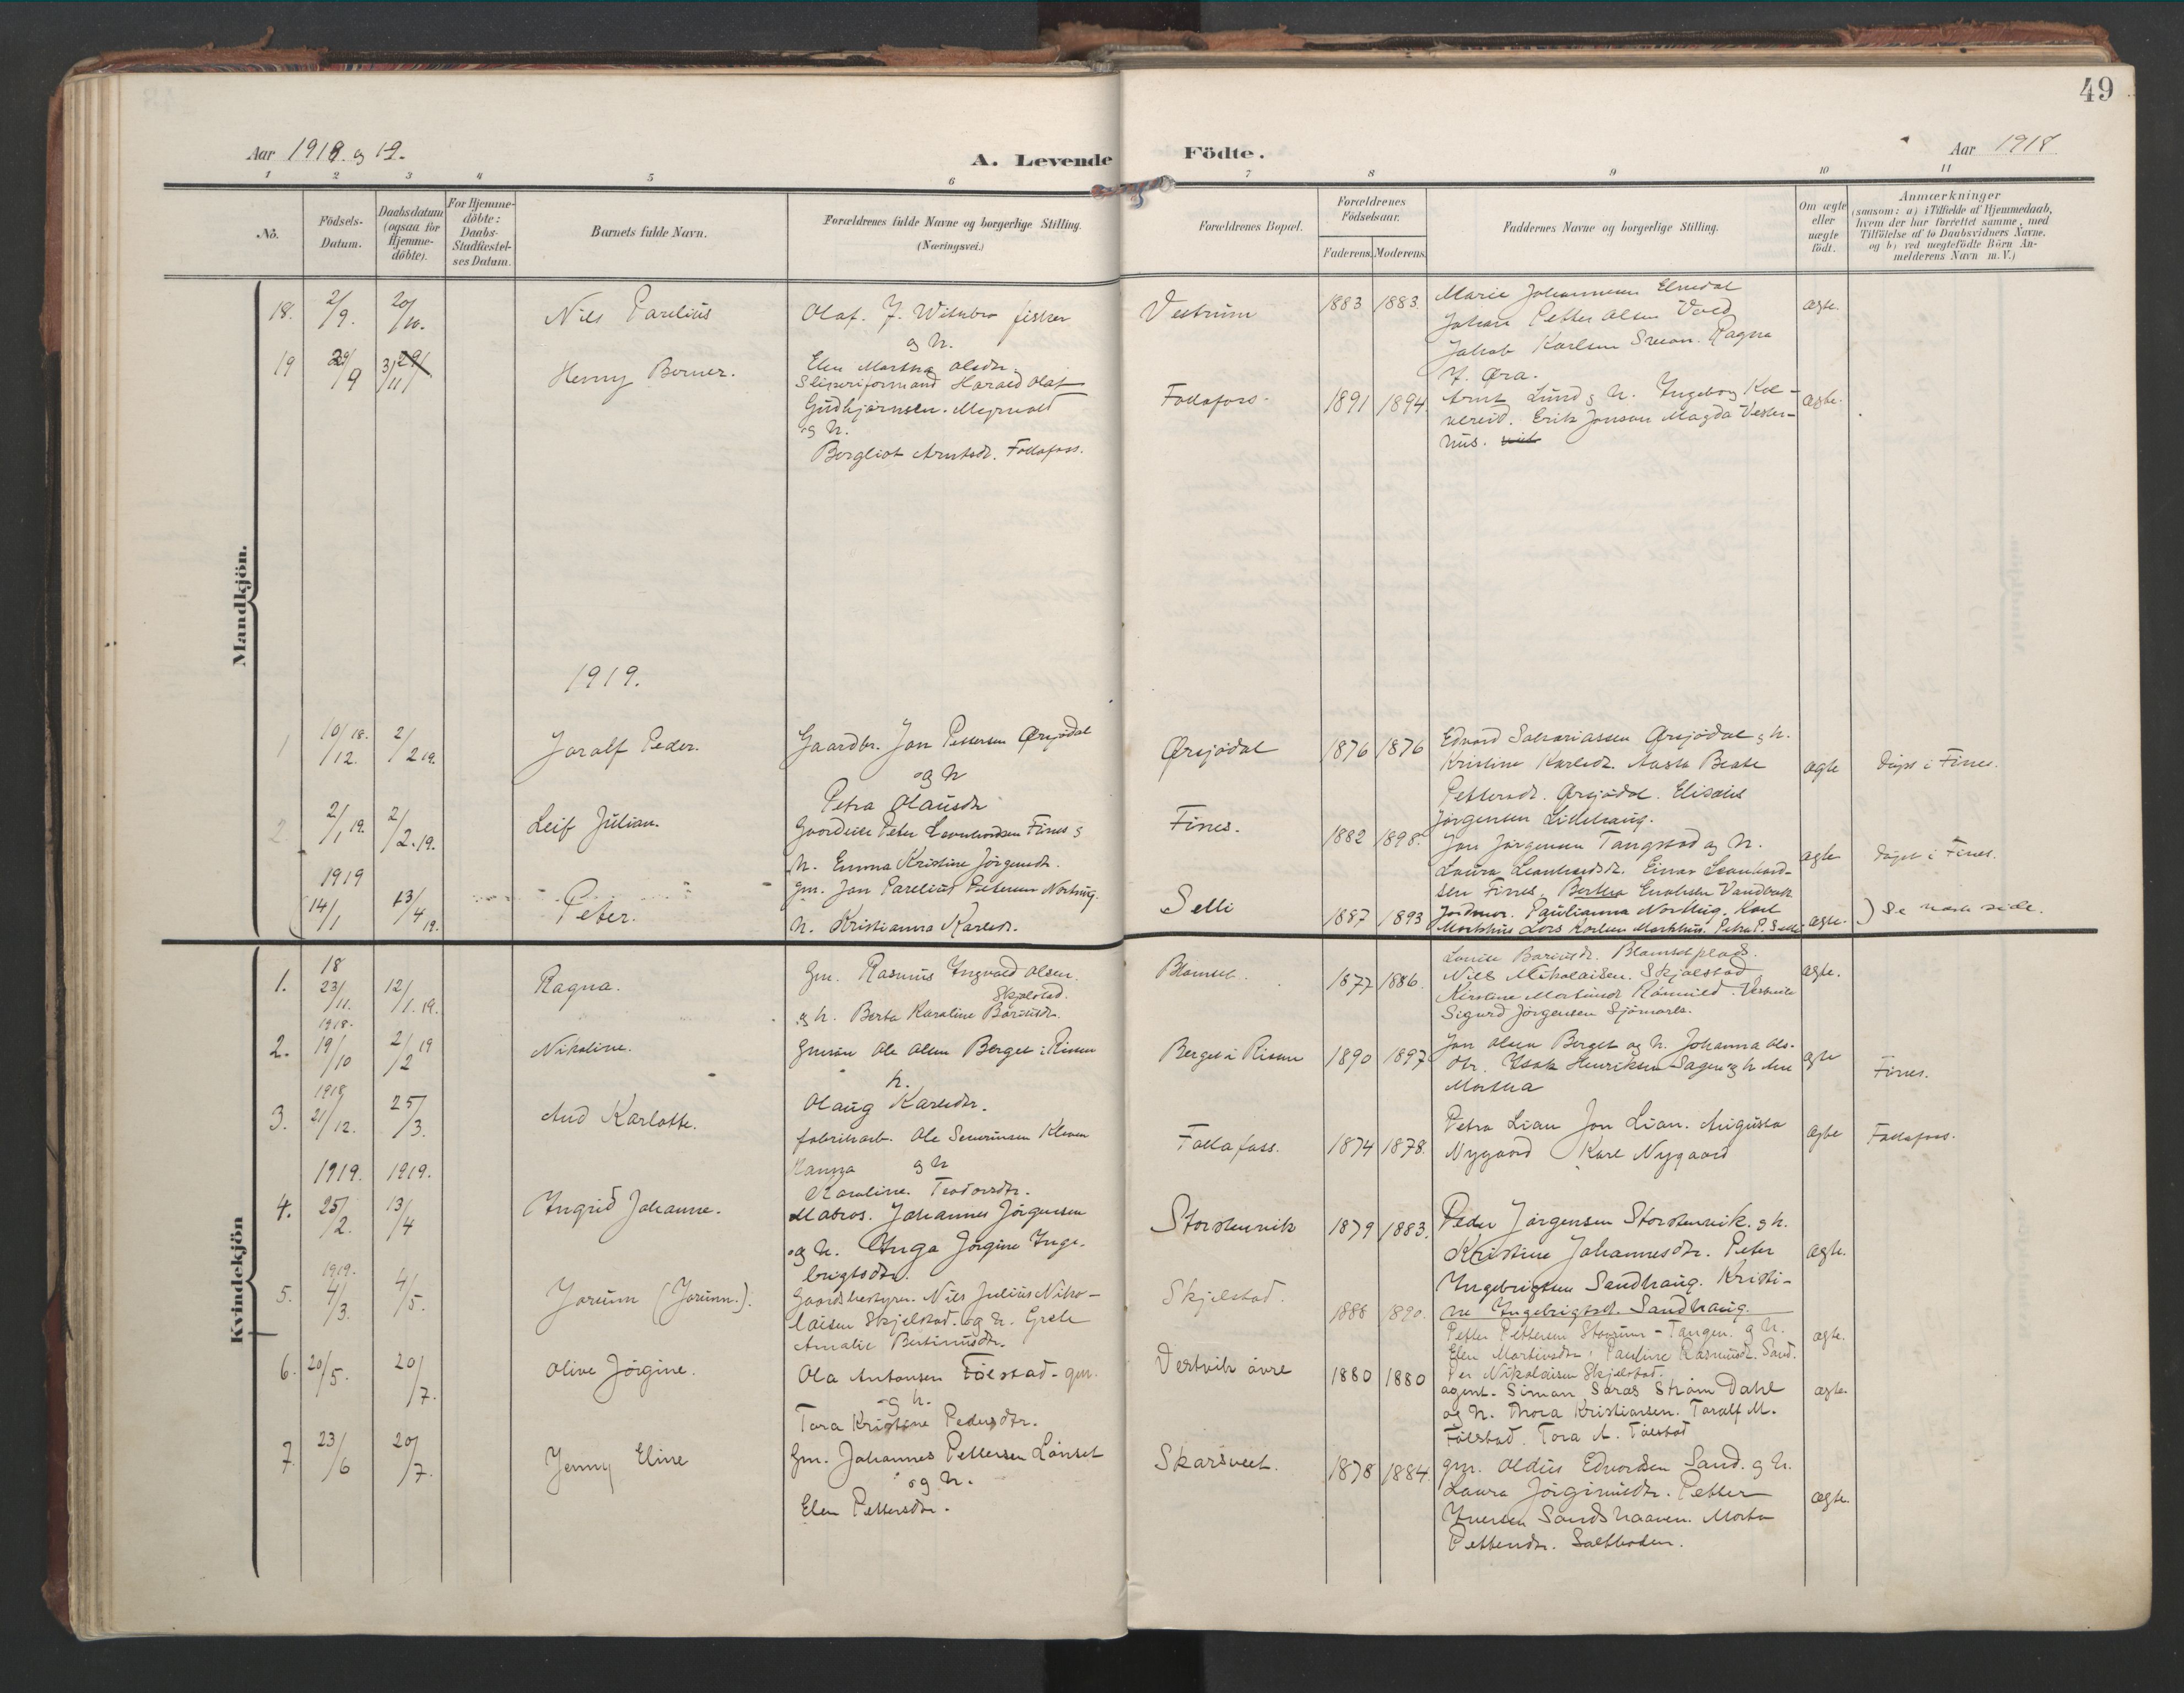 49
Aar 1918. og 19.
A. Levende Födte.
Aar 1918
1 2 3 4 5 6 7 8 9 10 11
No.
Födsels-Datum.
Daabsdatum (ogsaa for Hjemme-döbte).
For Hjemme-döbte: Daabs-Stadfæstel-ses Datum.
Barnets fulde Navn.
Forældrenes fulde Navne og borgerlige Stilling. (Næringsvei.)
Forældrenes Bopæl.
Forældrenes Födselsaar.
Faderens. Moderens.
Faddernes Navne og borgerlige Stilling.
Om ægte eller uægte födt.
Anmærkninger
(saasom: a) i Tilfælde af Hjemmedaab,
hvem der har forrettet samme, med
Tilföielse af to Daabsvidners Navne.
og b) ved uægtefödte Börn An-
melderens Navn m. V.)
Mandkjön.
18. 2/9. 20/10. Nils Parelius
Olaf. J. fisker
og h.
Elen Martha Olsdr.
Vestrum 1883 1883.
Marie Johannesen Elnedal
Johan Petter Olsen Vold
Jakob Karlsen Ragna
J. Øra.
ægte.
19 29/9 3/11 Henry Berner.
Sliperiformand Harald Olaf
Gudbjørnsen.
og h.
Bergliot Arntsdr. Follafoss.
Follafoss. 1891 1894.
Arnt Lund og h. Ingeborg Kol-
vereid. Erik Jonson Magda Vester-
hus.
ægte.
1919.
1 10/12. 18. 2/2 19. Joralf Peder.
Gaardbr. Jon Pettersen Ørsjødal
og h
Petra Olausdr
Ørsjødal 1876 1876
Edvard Sakariassen Ørsjødal og h.
Kristine Karlsdr. Aasta Beate
Pettersdr. Ørsjødal. Elisabet
Jørgensen Lillehaug.
ægte
døpt i Finnes.
2 2/1 19. 2/2. 19. Leif Julian.
Peter Leonhardsen Finnes og
h. Emma Kristine Jørgensdr.
Finnes. 1882 1898.
Jon Jørgensen Tangstad og h.
Laura Leonhardsdr. Einar Leonhard-
sen Finnes. Bertha Enoksen
ægte
døpt i Finnes.
1919
14/1 13/4 19. Peter.
gm. Jon Parelius Petersen Nortug.
h. Kristianna Karlsdr.
Selli 1887 1893
Jordmor. Paulianna Nortug. Karl
Lars Karlsen Petra P. Selli
ægte.
) Se næste side.
Kvindekjön
1. 18 23/11. 12/1. 19. Ragna.
Gm. Rasmus Ingvald Olsen.
Skjelstad.
og h. Berta Karoline
1877 1886.
Nils Nikolaisen. Skjelstad
Sigurd Jørgensen
ægte.
2. 1918. 19/10 2/2 19 Nikoline.
Ole Olsen Berget i Rissen
h.
Olaug Karlsdr.
Berget i Rissen 1890 1897
Jon Olsen Berget og h. Johanna Ols-
dtr. Isak Henriksen Sagen og h
Martha
ægte
Finnes.
3. 1918 21/12. 25/3. Aud Karlotte.
fabrikarb. Ole Severinsen
og h
Karoline. Teodorsdtr.
Follafoss. 1874 1878.
Petra Lian Jon Lian. Augusta
Nygaard Karl Nygaard
ægte
Follafoss.
1919. 1919.
4. 25/2. 13/4 Ingrid Johanne.
Matros. Johannes Jørgensen
og h. Inga Jørgine Inge-
brigtsdtr.
Storstenvik 1879 1883.
Peder Jørgensen Storstenvik. og h.
Kristine Johannesdtr. Peter
Ingebrigtsen Sandhaug. Kristi-
ne Ingebrigtsdtr. Sandhaug.
ægte.
5. 1919. 4/3. 4/5. Jorum (Jorunn.).
Gaardsbestyrer. Nils Julius Niko-
laisen Skjelstad. og h. Grete
Amalie Bertinusdtr.
Skjelstad. 1888 1890.
Petter Pettersen - Tangen. og h.
Elen Martinsdtr, Pauline Rasmusdr. Sand.
Per Nikolaisen Skjelstad.
ægte.
6. 20/5. 20/7. Olive Jørgine.
Ola Antonsen Fölstad - gm.
og h.
Tora Kristine Pedersdtr.
Vestvik øvre 1880 1880
agent. Simon Strøm Dahl
og h. Thora Kristiansen. Toralf M.
Fölstad. Tora A. Fölstad
ægte.
7. 23/6 20/7. Jenny Eline
Gm. Johannes Pettersen Lønset
og h.
Elen Pettersdtr.
Skarsveet. 1878 1884.
gm. Oldus Edvardsen Sand. og h.
Laura Jørginusdtr. Petter
Iversen Sandshaaven. Marta
Pettersdtr. Saltboden.
ægte.